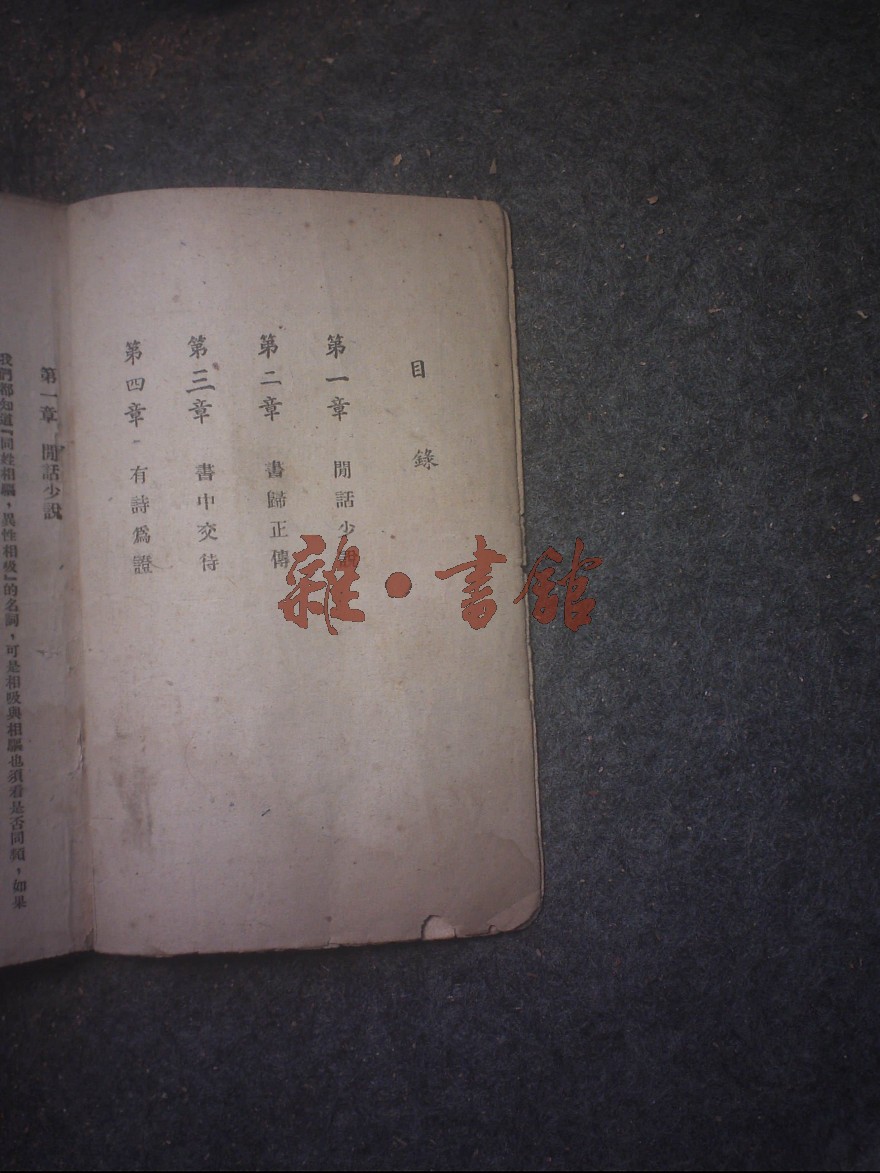 目錄
第一章 閒話少說
第二章 書歸正傳
第三章 書中交待
第四章 有詩爲證
第一章 閒話少說
我們都知道『同姓相驅，異性相吸』的名詞，可是相吸與相驅也須看是否同頻，如果
雜·書館